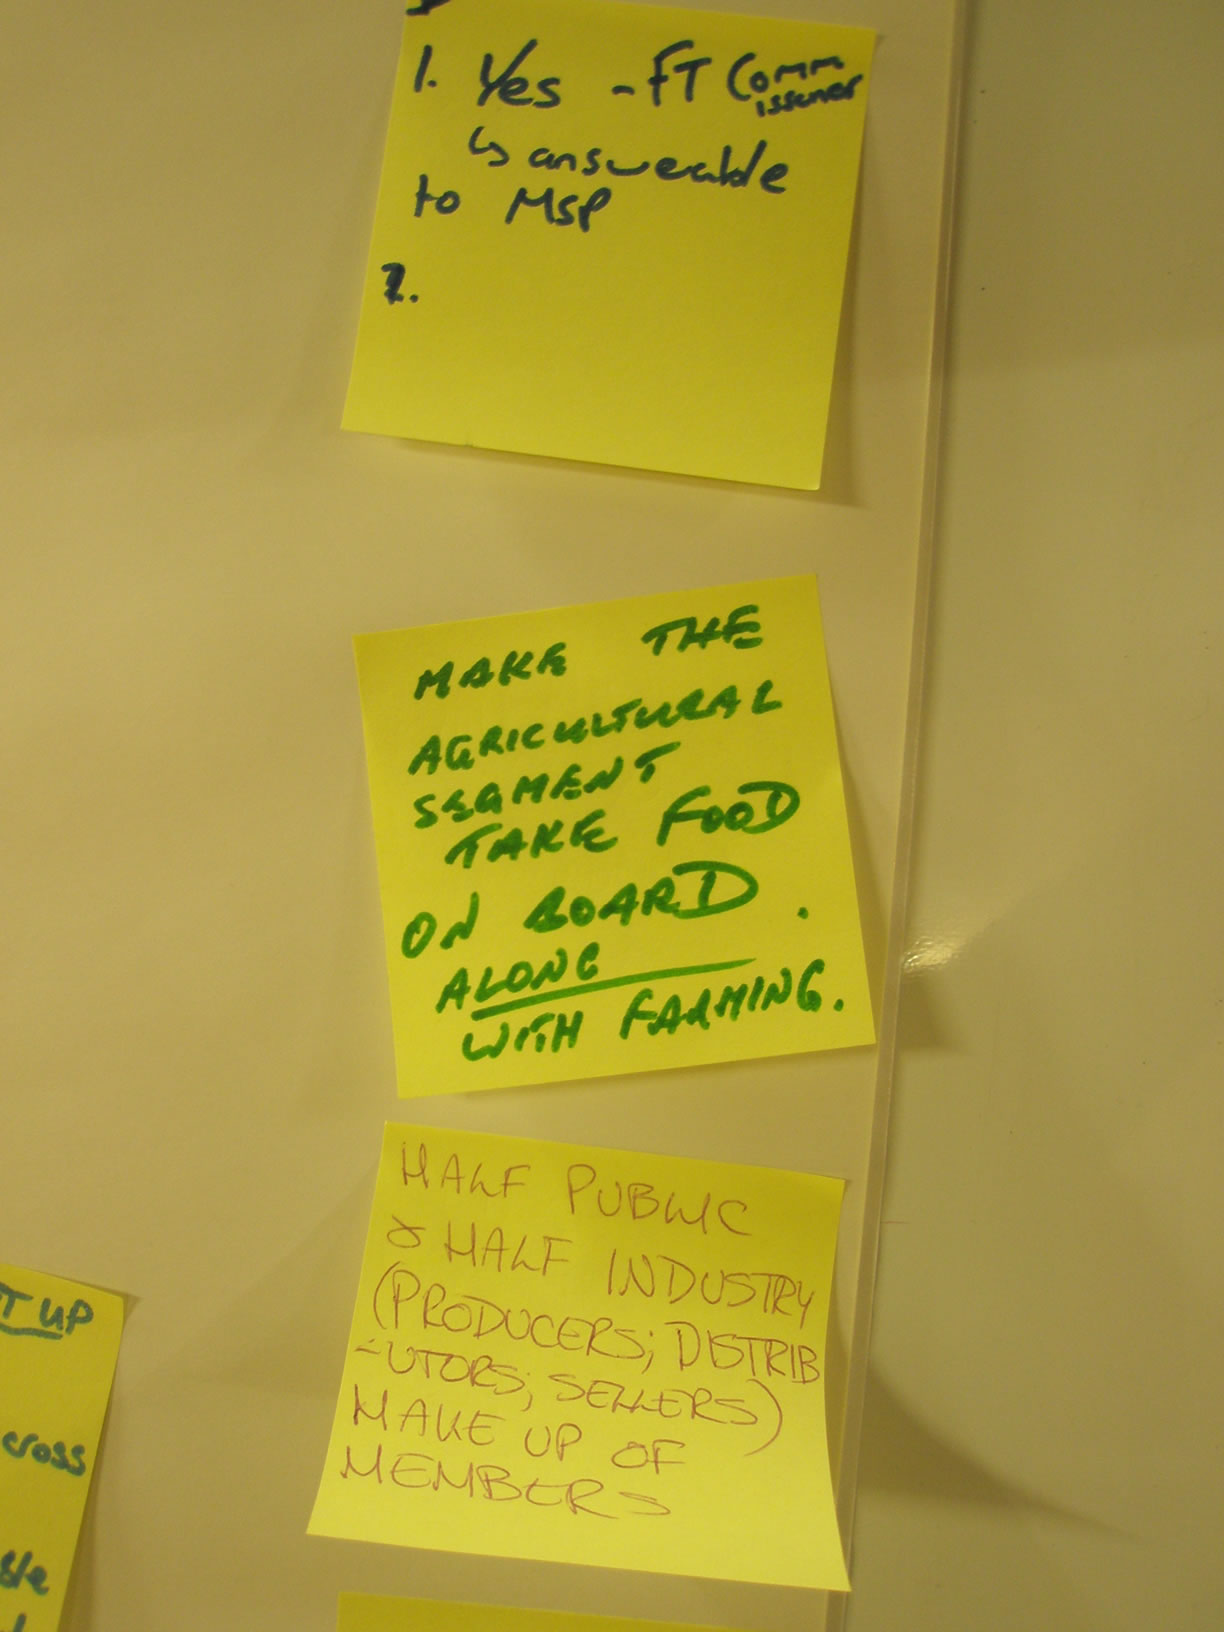 1. Yes - FT Comm
issioner
↳ answerable
to MSP
2.
MAKE THE
AGRICULTURAL
SEGMENT
TAKE FOOD
ON BOARD.
ALONG
WITH FARMING.
HALF PUBLIC
& HALF INDUSTRY
(PRODUCERS; DISTRIB
-UTORS; SELLERS)
MAKE UP OF
MEMBERS
T UP
cross